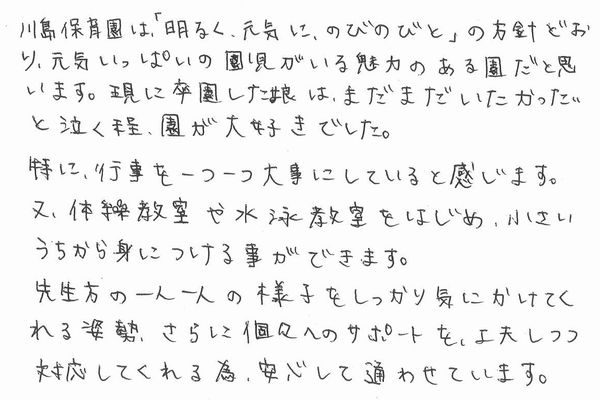 川島保育園は、「明るく、元気に、のびのびと」の方針どお
り、元気いっぱいの園児がいる魅力のある園だと思
います。現に卒園した娘は、まだまだいたかったﾞ
と泣く程、園が大好きでした。
特に、行事を一つ一つ大事にしていると感じます。
又、体操教室や水泳教室をはじめ、小さい
うちから身につける事ができます。
先生方の一人一人の様子をしっかり気にかけてく
れる姿勢、さらに個々へのサポートを、工夫しつつ
対応してくれる為、安心して通わせています。